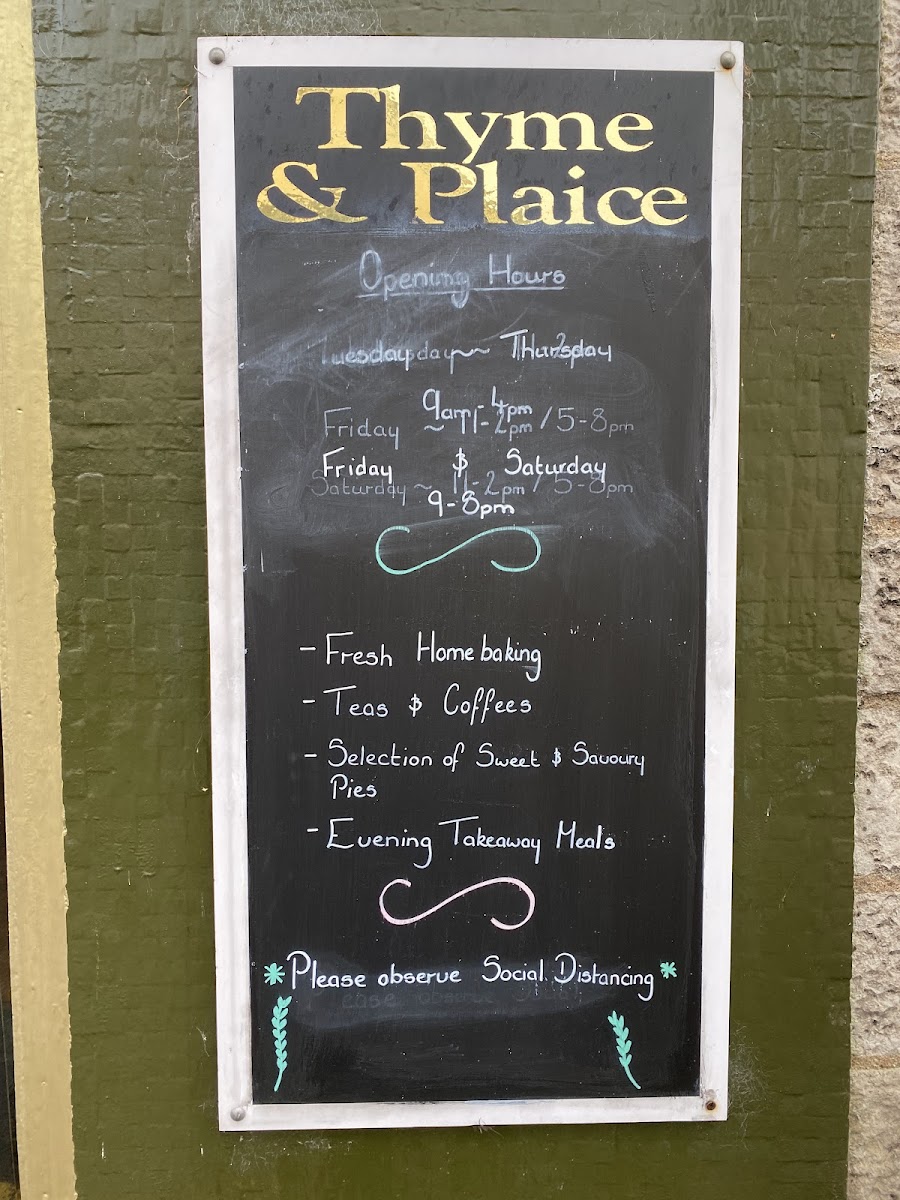 Thyme
& Plaice
Opening Hours
Tuesday ~ Thursday
9am - 4pm
Friday ~ 11 - 2pm / 5 - 8pm
Friday & Saturday
Saturday ~ 11 - 2pm / 5 - 8pm
9 - 8pm
- Fresh Homebaking
- Teas & Coffees
- Selection of Sweet & Savoury
Pies
- Evening Takeaway Meals
* Please observe Social Distancing *